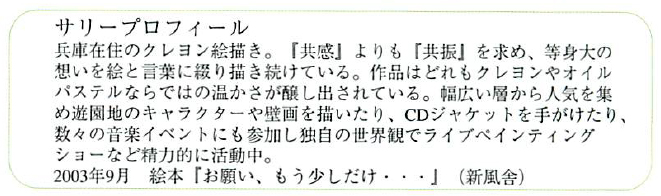 サリープロフィール
兵庫在住のクレヨン絵描き。『共感』よりも『共振』を求め、等身大の
想いを絵と言葉に綴り描き続けている。作品はどれもクレヨンやオイル
パステルならではの温かさが醸し出されている。幅広い層から人気を集
め遊園地のキャラクターや壁画を描いたり、CDジャケットを手がけたり、
数々の音楽イベントにも参加し独自の世界観でライブペインティング
ショーなど精力的に活動中。
2003年9月　絵本『お願い、もう少しだけ・・・』（新風舎）